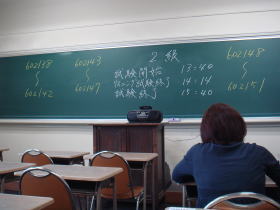 602138
〜
602142
602143
〜
602147
2級
試験開始 13:40
リスニング試験終了 14:14
試験終了 15:40
602148
〜
602151